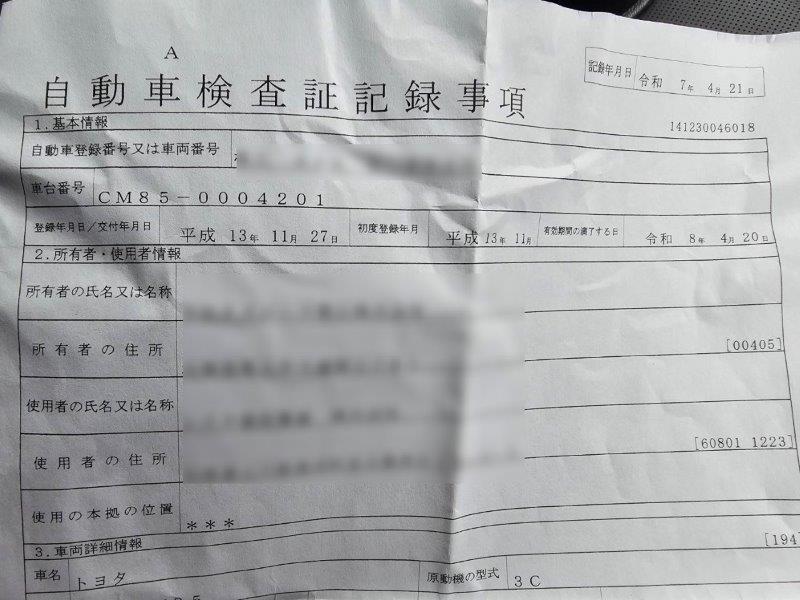 A
自動車検査証記録事項
記録年月日 令和 7年 4月 21日
1.基本情報
141230046018
自動車登録番号又は車両番号
車台番号 CM85-0004201
登録年月日/交付年月日 平成 13年 11月 27日 初度登録年月 平成 13年 11月 有効期間の満了する日 令和 8年 4月 20日
2.所有者・使用者情報
所有者の氏名又は名称
所有者の住所 [00405]
使用者の氏名又は名称
使用者の住所 [60801 1223]
使用の本拠の位置 ***
3.車両詳細情報 [194]
車名 トヨタ 原動機の型式 3C